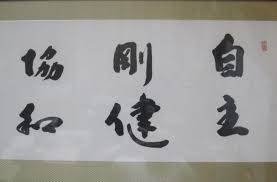 自主
剛健
協和